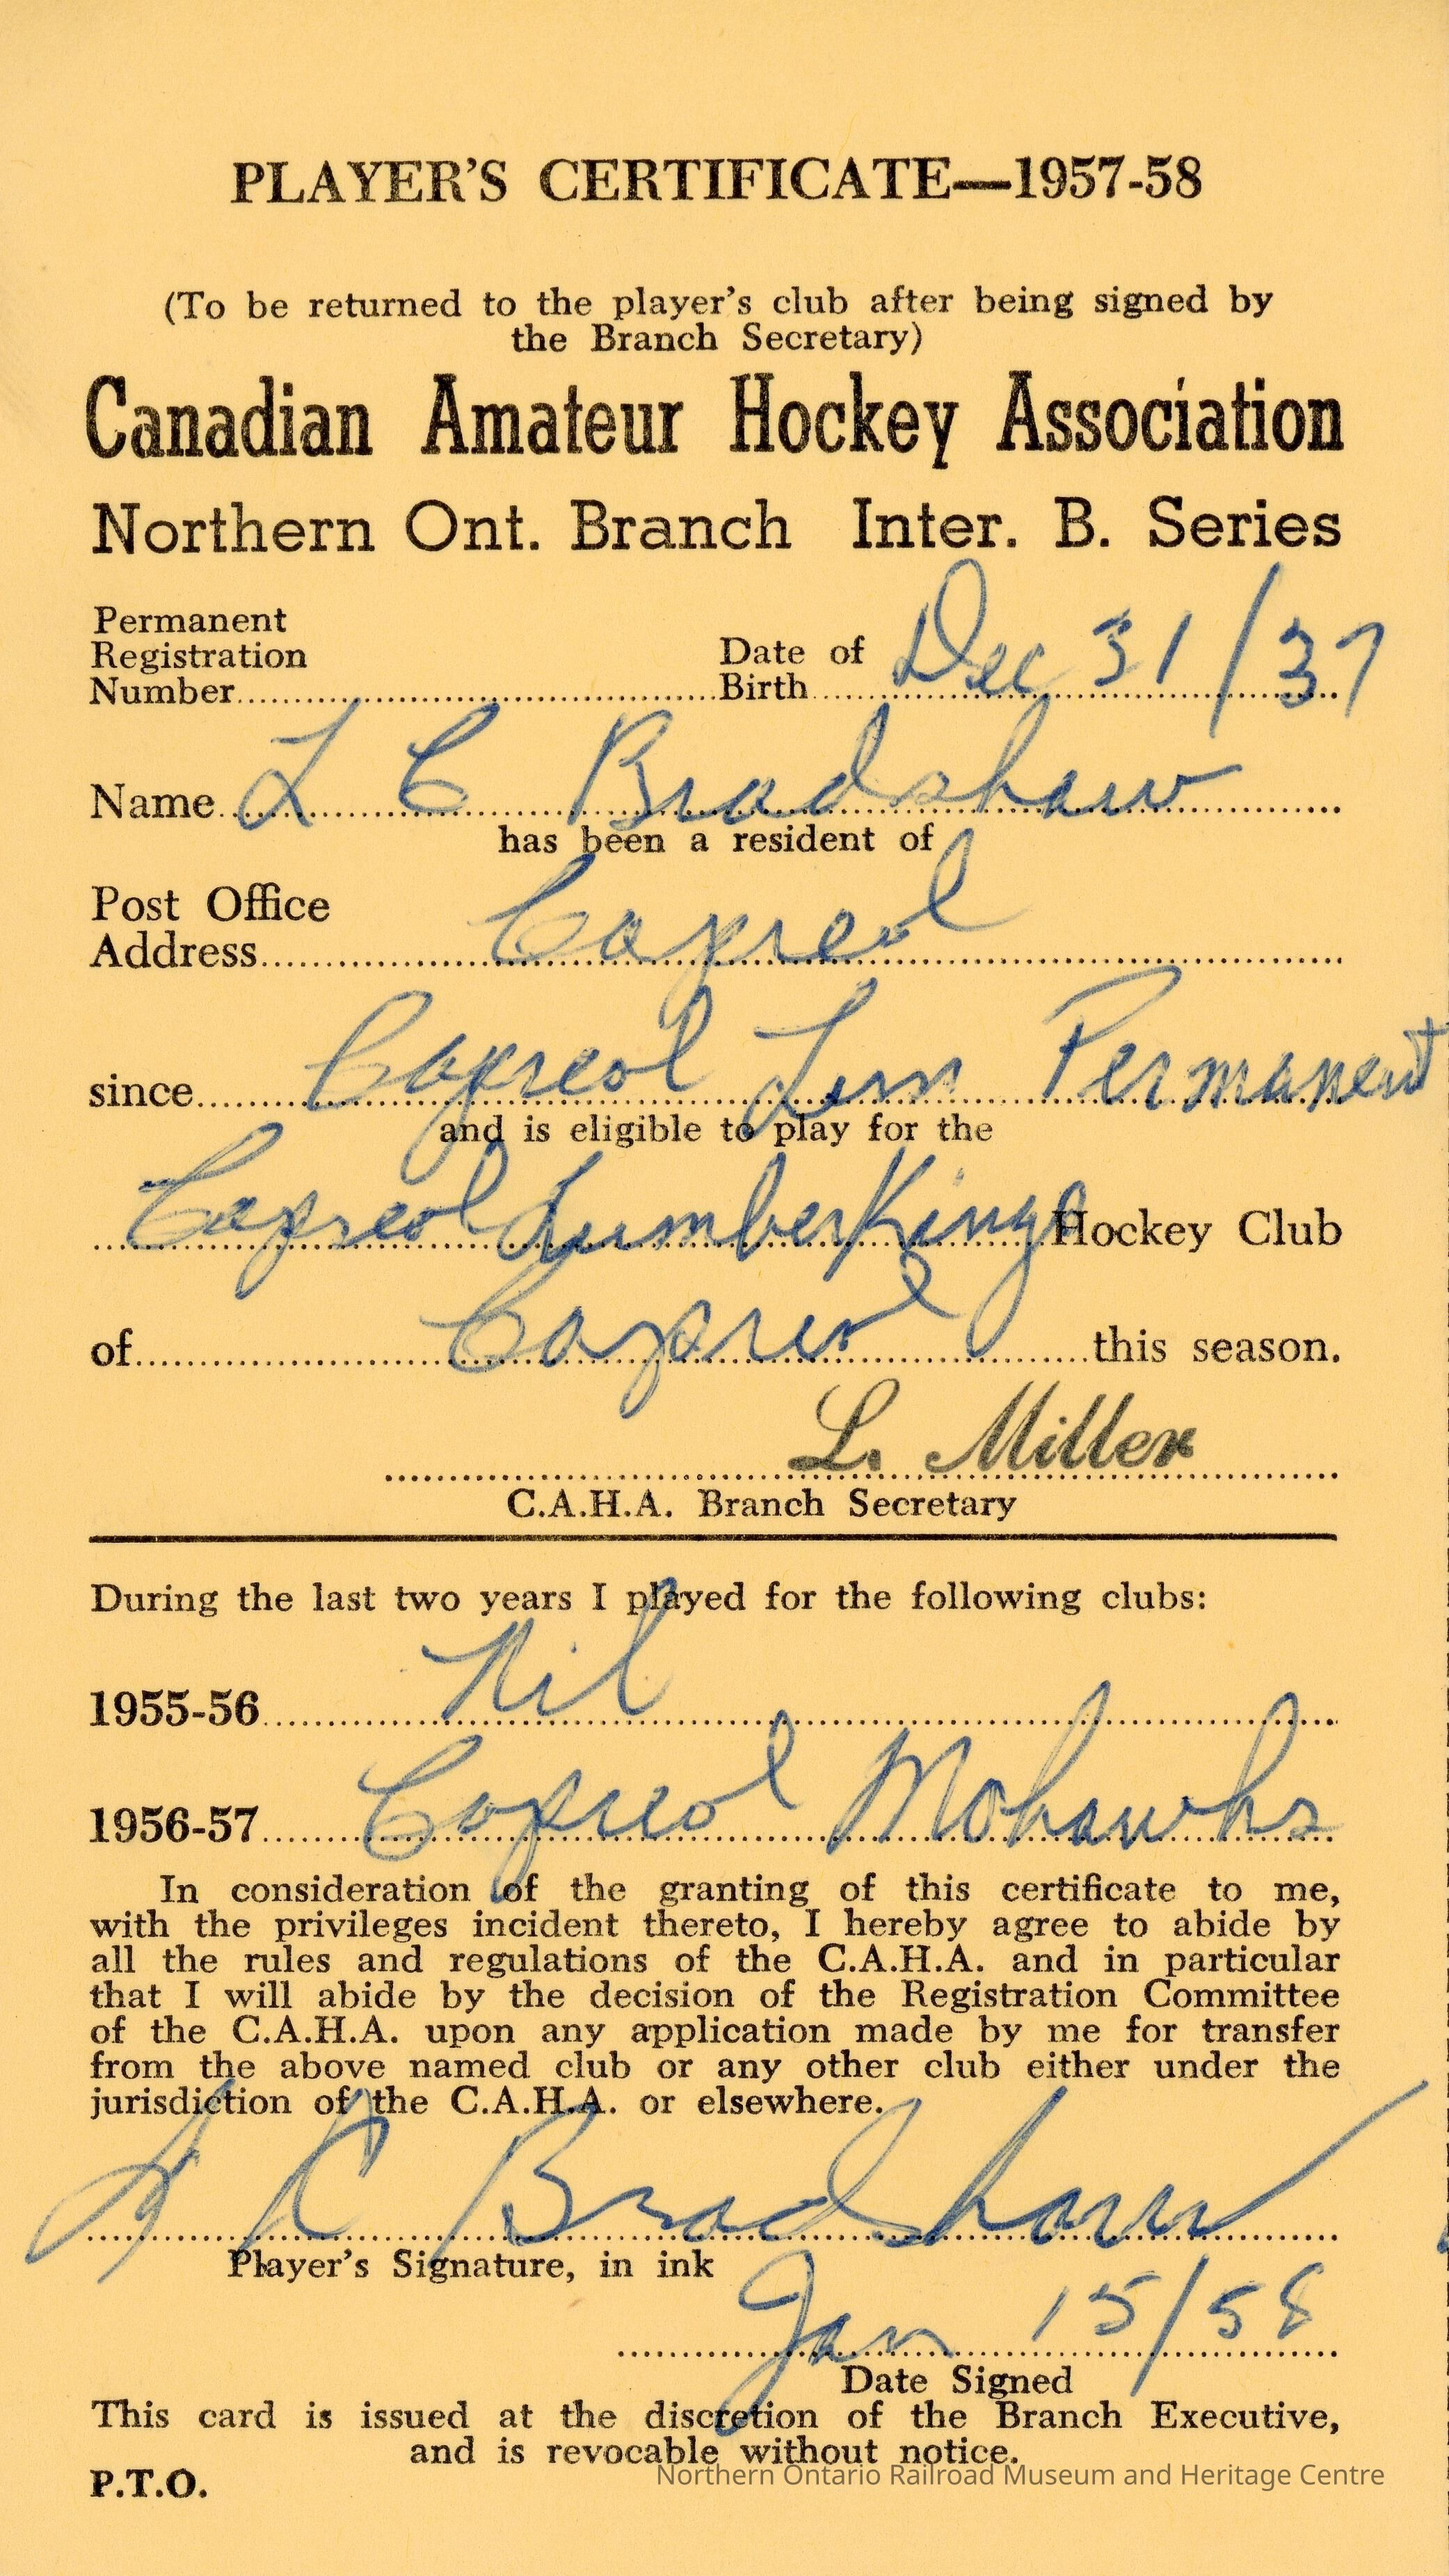 PLAYER'S CERTIFICATE—1957-58
(To be returned to the player's club after being signed by
the Branch Secretary)
Canadian Amateur Hockey Association
Northern Ont. Branch Inter. B. Series
Permanent
Registration
Number
Date of
Birth Dec 31/37
Name L C Bradshaw
has been a resident of
Post Office
Address Capreol
since Capreol Permanent
and is eligible to play for the
Capreol LumberKings Hockey Club
of Capreol this season.
L. Miller
C.A.H.A. Branch Secretary
During the last two years I played for the following clubs:
1955-56 Nil
1956-57 Capreol Mohawks
In consideration of the granting of this certificate to me,
with the privileges incident thereto, I hereby agree to abide by
all the rules and regulations of the C.A.H.A. and in particular
that I will abide by the decision of the Registration Committee
of the C.A.H.A. upon any application made by me for transfer
from the above named club or any other club either under the
jurisdiction of the C.A.H.A. or elsewhere.
L C Bradshaw
Player's Signature, in ink
Jan 15/58
Date Signed
This card is issued at the discretion of the Branch Executive,
and is revocable without notice.
P.T.O.
Northern Ontario Railroad Museum and Heritage Centre